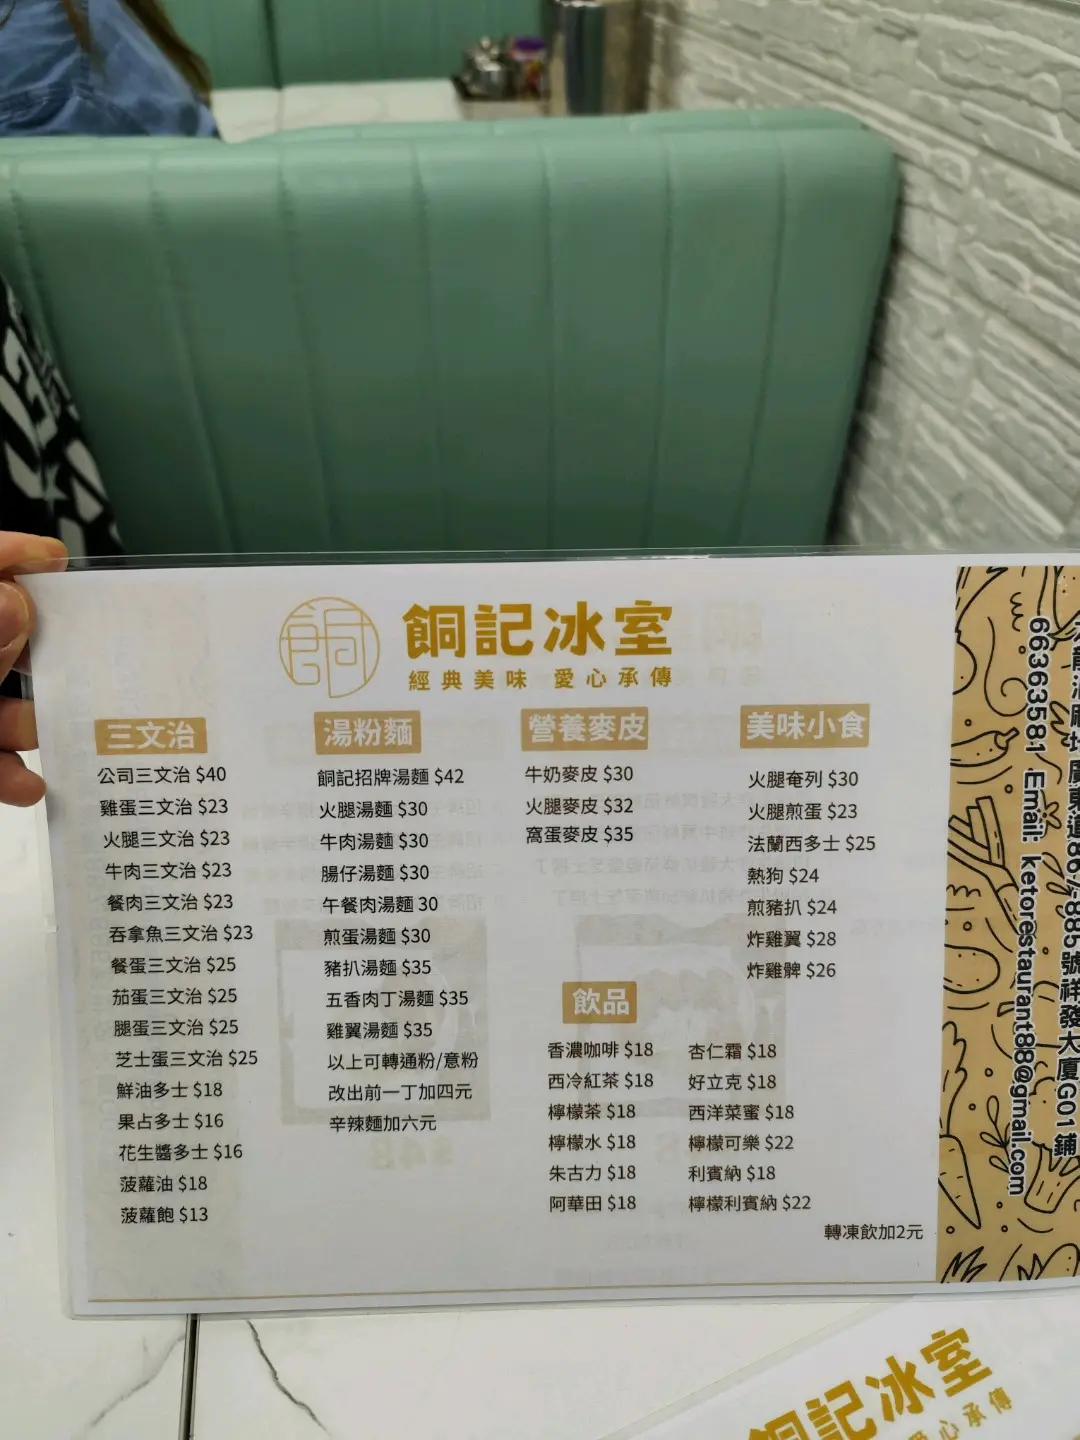 餇記冰室
經典美味 愛心承傳
三文治
公司三文治 $40
雞蛋三文治 $23
火腿三文治 $23
牛肉三文治 $23
餐肉三文治 $23
吞拿魚三文治 $23
餐蛋三文治 $25
茄蛋三文治 $25
腿蛋三文治 $25
芝士蛋三文治 $25
鮮油多士 $18
果占多士 $16
花生醬多士 $16
菠蘿油 $18
菠蘿飽 $13
湯粉麵
餇記招牌湯麵 $42
火腿湯麵 $30
牛肉湯麵 $30
腸仔湯麵 $30
午餐肉湯麵 30
煎蛋湯麵 $30
豬扒湯麵 $35
五香肉丁湯麵 $35
雞翼湯麵 $35
以上可轉通粉/意粉
改出前一丁加四元
辛辣麵加六元
營養麥皮
牛奶麥皮 $30
火腿麥皮 $32
窩蛋麥皮 $35
美味小食
火腿奄列 $30
火腿煎蛋 $23
法蘭西多士 $25
熱狗 $24
煎豬扒 $24
炸雞翼 $28
炸雞髀 $26
飲品
香濃咖啡 $18
西冷紅茶 $18
檸檬茶 $18
檸檬水 $18
朱古力 $18
阿華田 $18
杏仁霜 $18
好立克 $18
西洋菜蜜 $18
檸檬可樂 $22
利賓納 $18
檸檬利賓納 $22
轉凍飲加2元
廣東道867-885號祥發大廈G01鋪
66363581 Email: ketorestaurant88@gmail.com
餇記冰室
愛心承傳